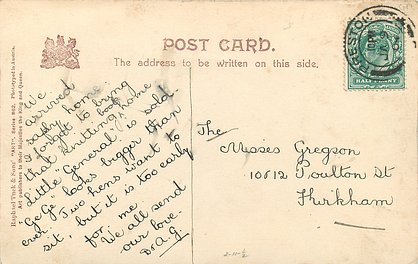 POST CARD.
The address to be written on this side.
Raphael Tuck & Sons' "ART" Series 962. Phototyped in Austria.
Art publishers to Their Majesties the King and Queen.
PRESTON
HALFPENNY
We
arrived
safely home.
I forgot to bring
that knitting book home
Little "General" is sold
"Ge Ge" looks bigger than
ever. Two hens want to
sit, but it is too early
for me
We all send
our love.
The
Misses Gregson
10 & 12 Poulton St
Kirkham
2-11-½